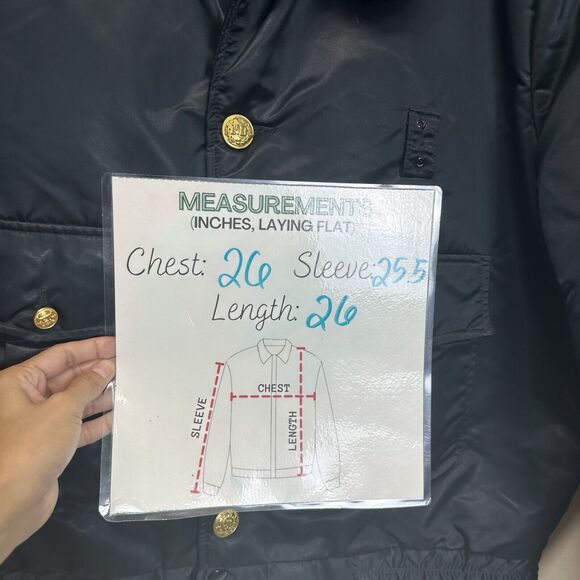 PD
MEASUREMENTS
(INCHES, LAYING FLAT)
Chest: 26 Sleeve: 25.5
Length: 26
CHEST
SLEEVE
LENGTH